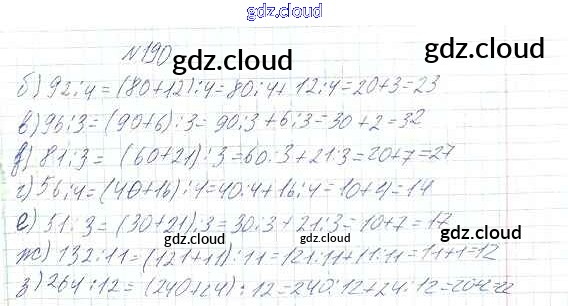 gdz.cloud
№190
gdz.cloud
gdz.cloud
б) 92:4=(80+12):4=80:4+12:4=20+3=23
gdz.cloud
в) 96:3=(90+6):3=90:3+6:3=30+2=32
gdz.cloud
gdz.cloud
д) 81:3=(60+21):3=60:3+21:3=20+7=27
г) 56:4=(40+16):4=40:4+16:4=10+4=14
gdz.cloud
е) 51:3=(30+21):3=30:3+21:3=10+7=17
gdz.cloud
gdz.cloud
ж) 132:11=(121+11):11=121:11+11:11=11+1=12
gdz.cloud
з) 264:12=(240+24):12=240:12+24:12=20+2=22
gdz.cloud